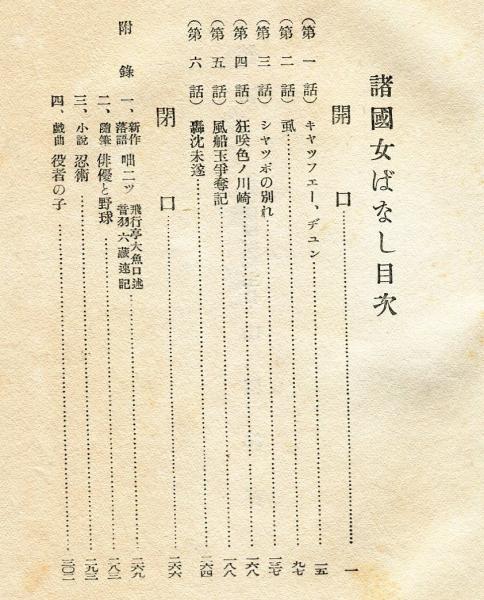 諸國女ばなし目次
開口 一
(第一話) キヤツフエー、デユン 一五
(第二話) 虱 九七
(第三話) シヤツポの別れ 一三七
(第四話) 狂咲色ノ川崎 一六八
(第五話) 風船玉爭奪記 一八八
(第六話) 轟沈未遂 二六四
閉口 二六六
附錄 一、新作落語 咄二ツ 飛行亭大魚口述 音羽六藏速記 二六九
二、隨筆 俳優と野球 二八三
三、小説 忍術 二九三
四、戯曲 役者の子 三〇二